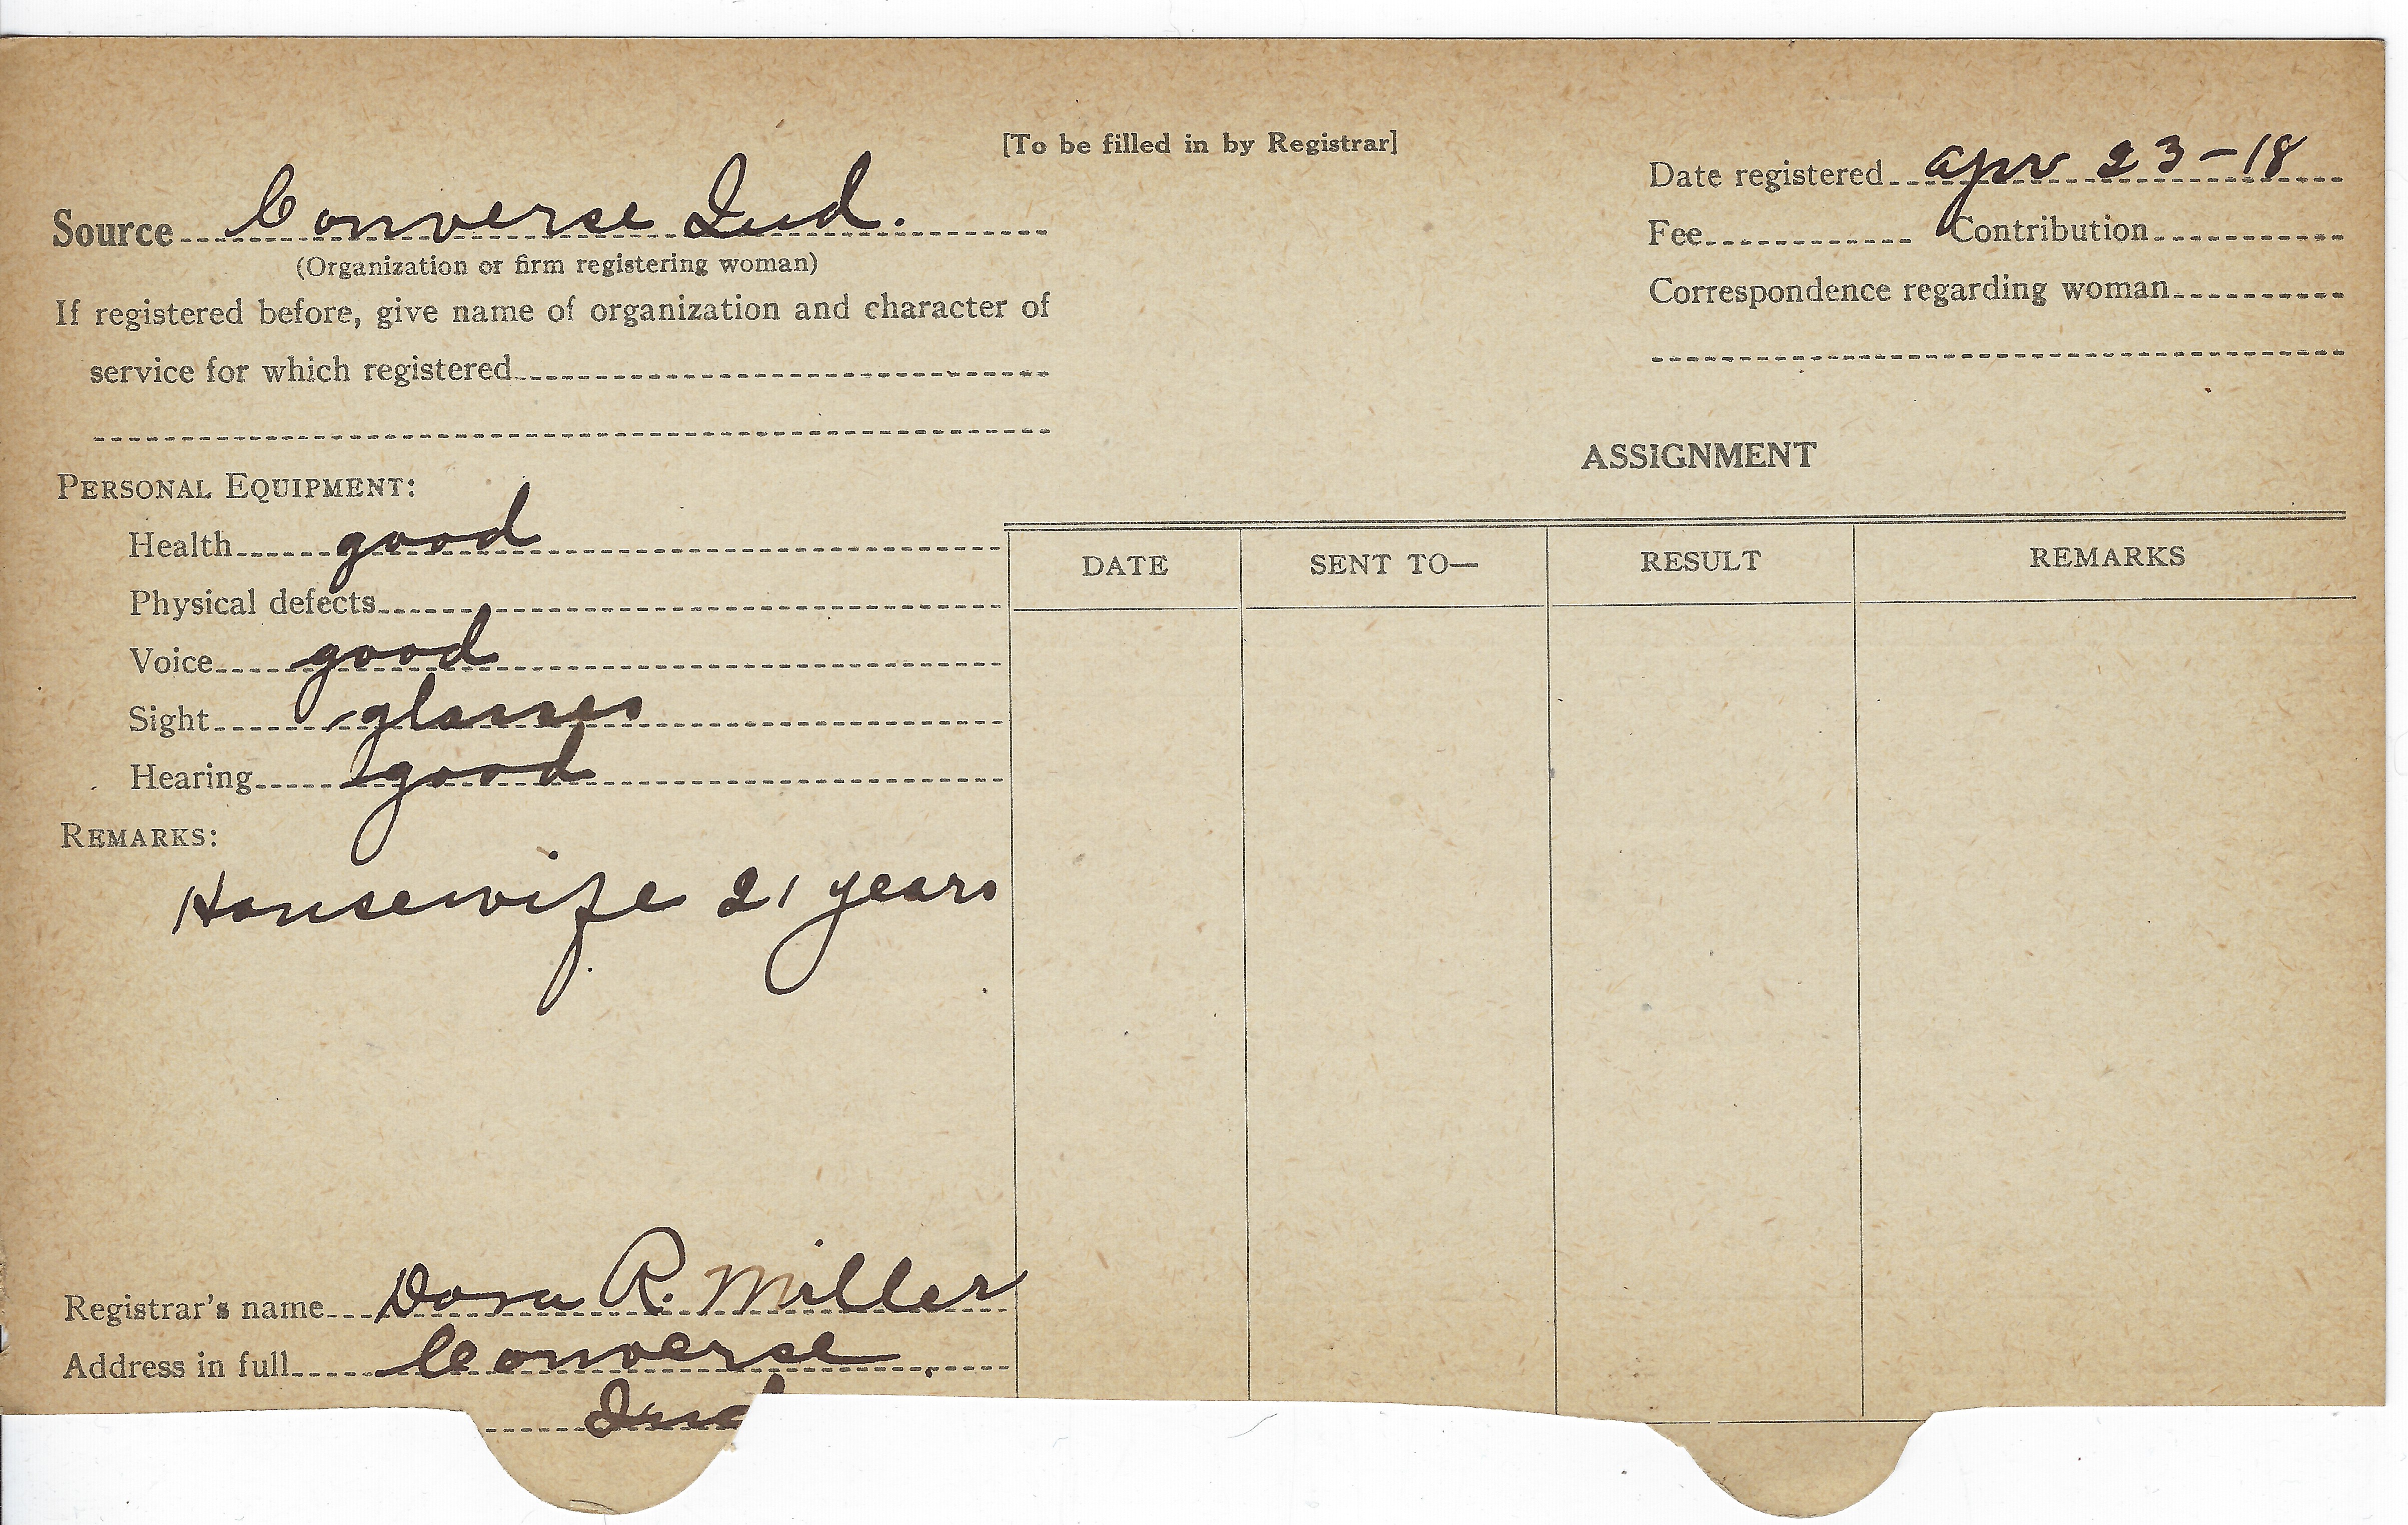 [To be filled in by Registrar]
Date registered apr 23-18
Source Converse Ind.
(Organization or firm registering woman)
Fee Contribution
If registered before, give name of organization and character of
service for which registered
Correspondence regarding woman
ASSIGNMENT
PERSONAL EQUIPMENT:
Health good
Physical defects
Voice good
Sight glasses
Hearing good
DATE SENT TO— RESULT REMARKS
REMARKS:
Housewife 21 years
Registrar's name Dora R. Miller
Address in full Converse
Ind